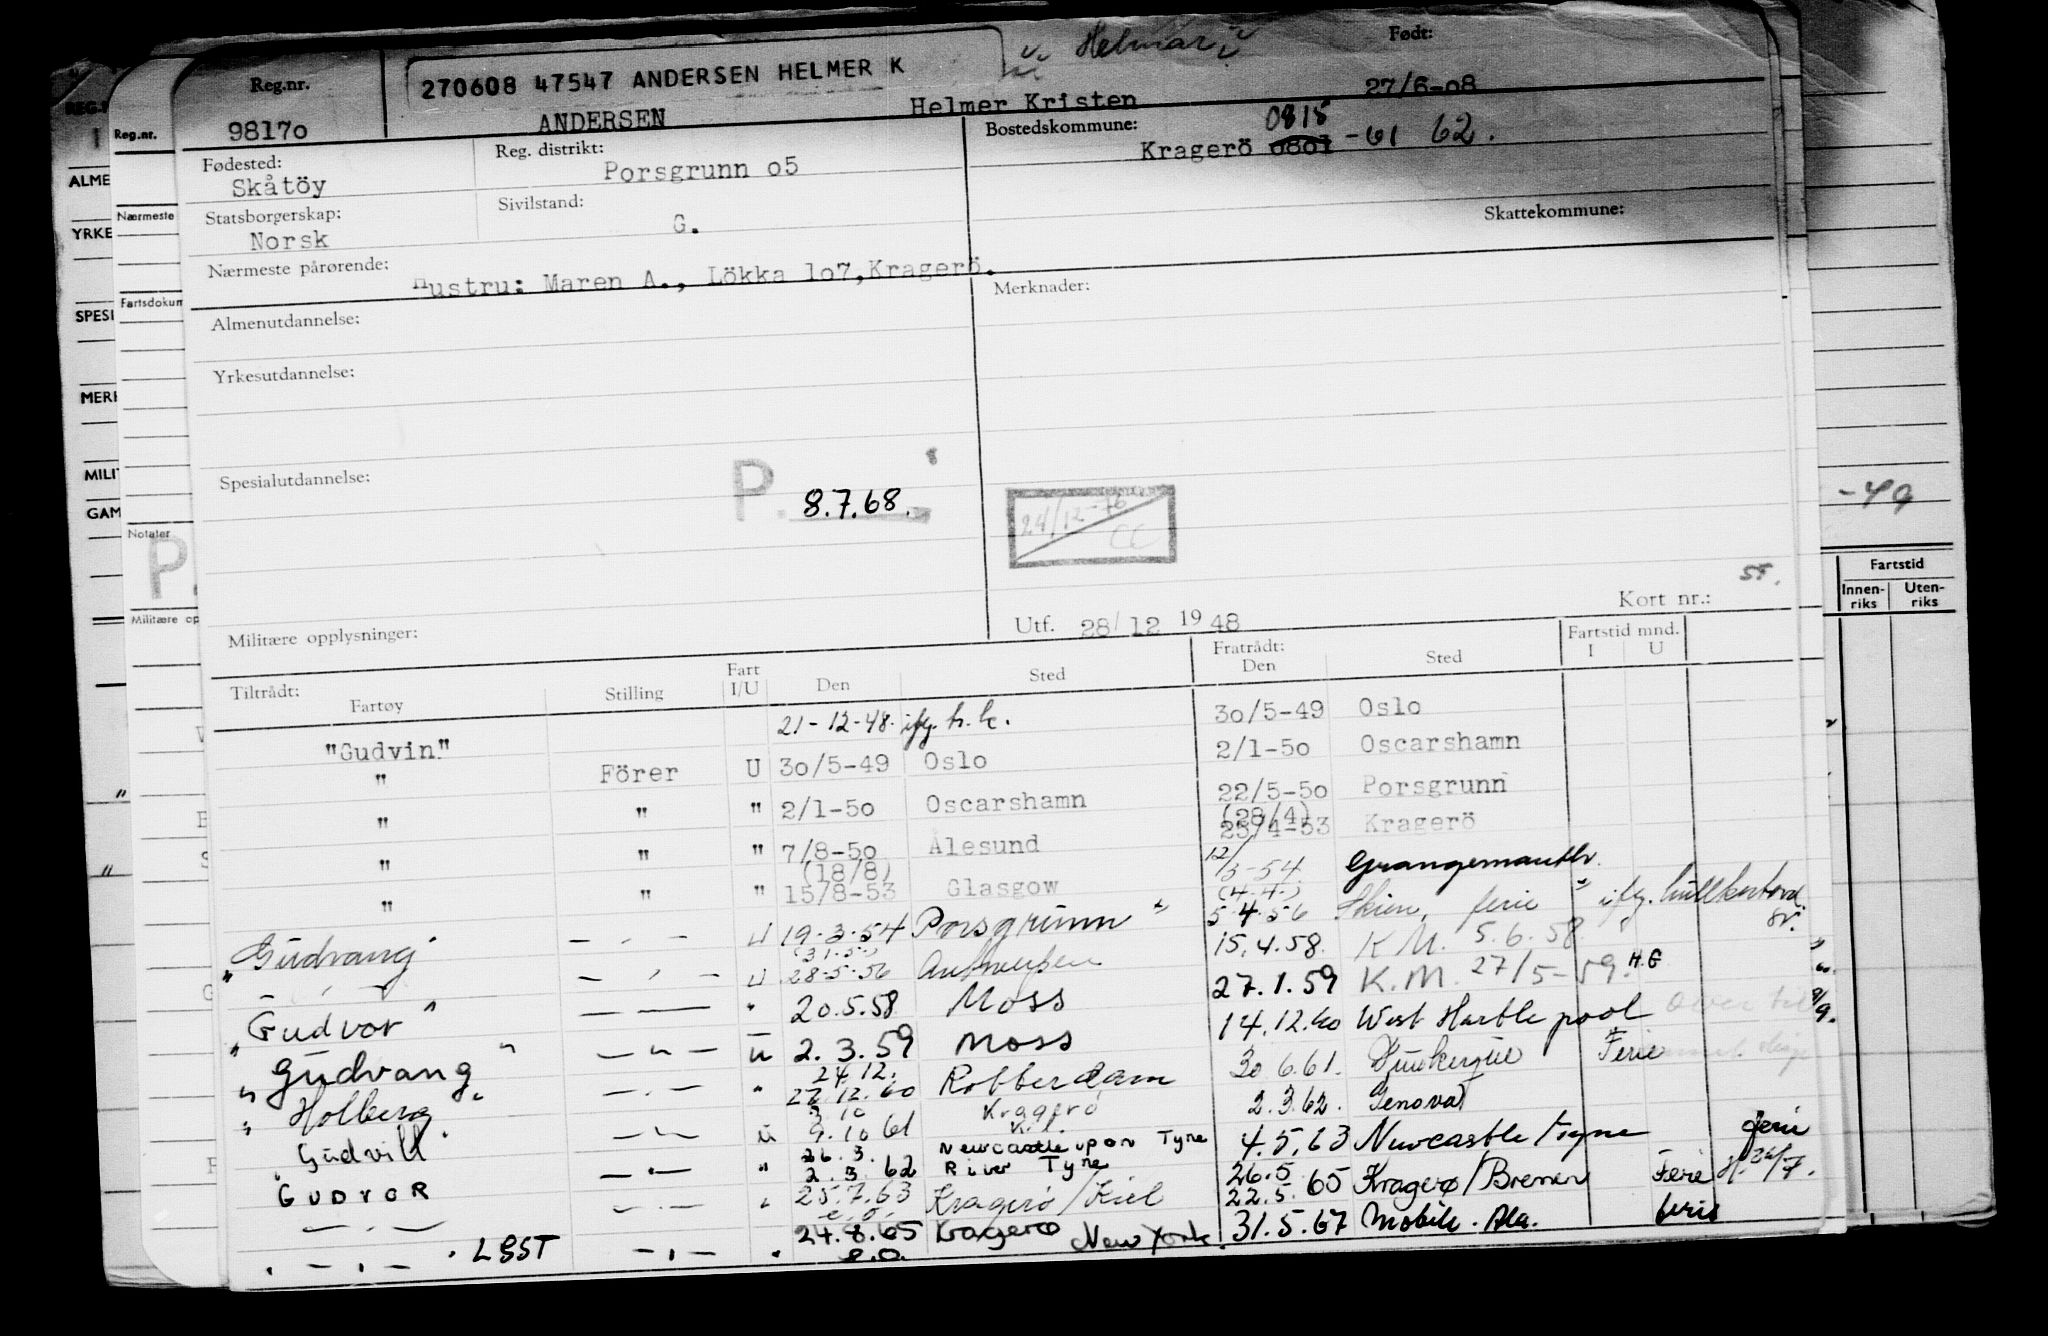 Reg.nr.
270608 47547 ANDERSEN HELMER K
" Helmar "
Født:
98170
ANDERSEN
Helmer Kristen
27/6-08
Fødested:
Skåtöy
Reg. distrikt:
Porsgrunn o5
Bostedskommune:
Kragerö 0801 0815 -61 62.
Statsborgerskap:
Norsk
Sivilstand:
G.
Skattekommune:
Nærmeste pårørende:
Hustru: Maren A., Lökka 1o7, Kragerö.
Almenutdannelse:
Merknader:
Yrkesutdannelse:
Spesialutdannelse:
P. 8.7.68.
24/12-76
CC
Militære opplysninger:
Utf. 28/12 1948
Kort nr.:
Tiltrådt:
Fartøy
Stilling
Fart I/U
Den
Sted
Fratrådt:
Den
Sted
Fartstid mnd.
I U
"Gudvin" 21-12-48. ifg. h.k. 30/5-49 Oslo
" Förer U 30/5-49 Oslo 2/1-50 Oscarshamn
" " " 2/1-50 Oscarshamn 22/5-50 Porsgrunn
(28/4)
" " " 7/8-50 Ålesund 25/4-53 Kragerö
(18/8)
" " " 15/8-53 Glasgow 12/3-54 Grangemauth.
(4.4.)
"Gudvang" - " - U 19.3.54 Porsgrunn 5.4.56 Skien, ferie ifg. hullkortord.
(31.5.)
- " - - " - U 28.5.56 Antwerpen 15.4.58. K.M. 5.6.58
"Gudvor" - - " 20.5.58 Moss 27.1.59 K.M. 27/5-59. H.G
"Gudvang" - " - U 2.3.59 Moss 14.12.60 West Hartlepool
24.12.
"Holberg" - " - " 22.12.60 Rotterdam 30.6.61. Djunkerque Ferie
3.10 Kragerö
"Gudvill" - " - U 9.10.61 K. 2.3.62. Genova
26.3. Newcastle upon Tyne
"GUDVOR - " - " 2.3.62 River Tyne 4.5.63 Newcastle/Tyne ferie
- " - - " - " 25.7.63 Kragerö/Kiel 26.5 22.5.65 Kragerø/Bremen Ferie
e.o.
" - " - " LEST - " - " 24.8.65 Kragerø New York. 31.5.67 Mobile. Ala. ferie
e.o.
REG.
ALME
YRKE
SPESI
MERK
MILIT
GAM
Reg.nr.
Nærmeste
Fartsdokum
Notater
P.
Militære op
-49
Fartstid
Innen-riks
Uten-riks